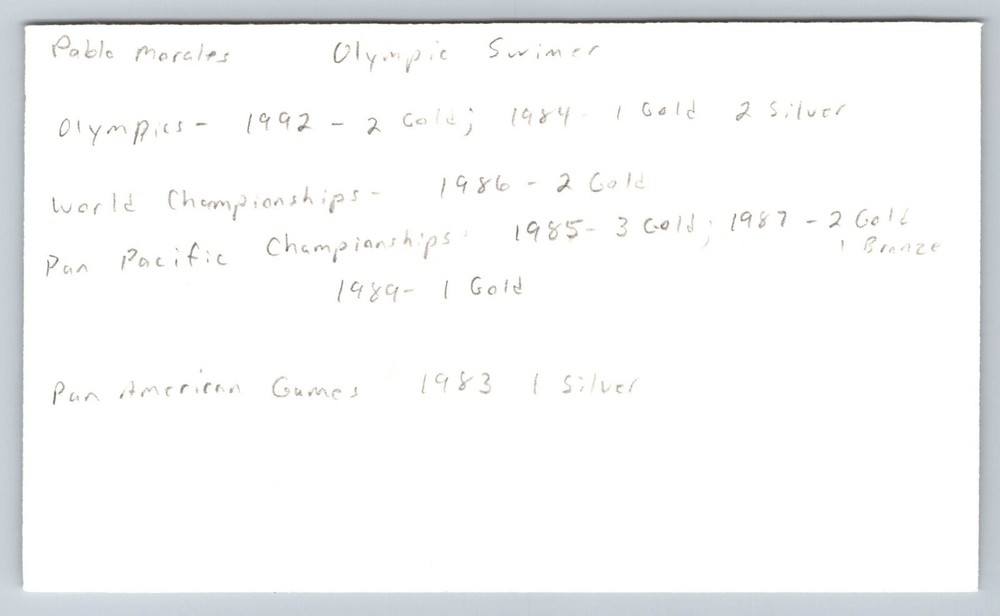 Pablo Morales Olympic Swimer
Olympics - 1992 - 2 Gold; 1984 - 1 Gold 2 Silver
World Championships - 1986 - 2 Gold
Pan Pacific Championships - 1985 - 3 Gold; 1987 - 2 Gold
1 Bronze
1989 - 1 Gold
Pan American Games 1983 1 Silver